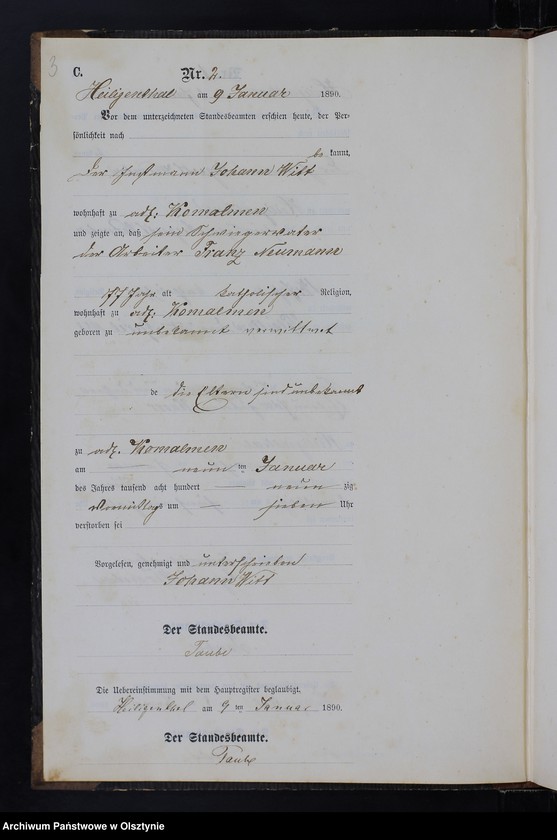 3
C. Nr. 2.
Heiligenthal am 9 Januar 1890.
Vor dem unterzeichneten Standesbeamten erschien heute, der Per-
sönlichkeit nach
be kannt,
der Instmann Johann Witt
wohnhaft zu adl: Komalmen
und zeigte an, daß sein Schwiegervater
der Arbeiter Franz Neumann
77 Jahr alt katholischer Religion,
wohnhaft zu adl: Komalmen
geboren zu unbekannt verwittwet
de die Eltern sind unbekannt
zu adl. Komalmen
am neun ten Januar
des Jahres tausend acht hundert neun zig,
Vormittags um sieben Uhr
verstorben sei
Vorgelesen, genehmigt und unterschrieben
Johann Witt
Der Standesbeamte.
Taube
Die Uebereinstimmung mit dem Hauptregister beglaubigt.
Heiligenthal am 9 ten Januar 1890.
Der Standesbeamte.
Taube
Archiwum Państwowe w Olsztynie